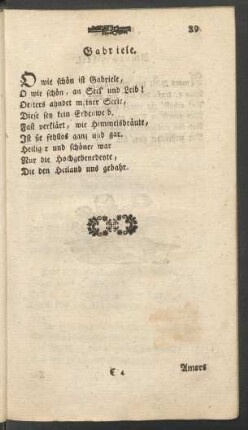 39
Gabriele.
O wie schön ist Gabriele,
O wie schön, an Seel' und Leib!
Oefters ahndet meiner Seele,
Diese sey kein Erdenweib.
Fast verklärt, wie Himmelsbräute,
Ist sie fehllos ganz und gar.
Heiliger und schöner war
Nur die Hochgebenedeyte,
Die den Heiland uns gebahr.
C 4
Amors